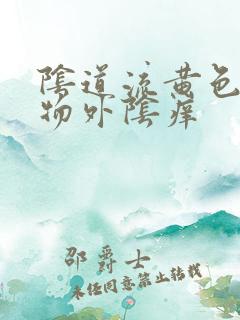 陰道流黄色
物外陰痒
邵爵士
未任同意禁止转载